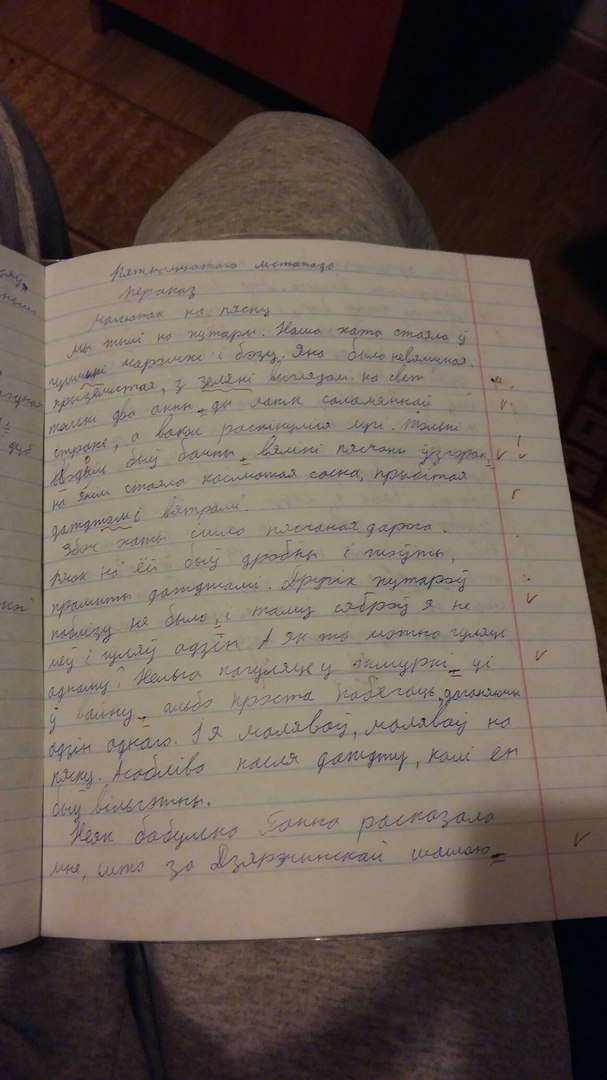 Пятнаццатага лістапада
Пераказ
Малюнак на пяску
Мы жылі на хутары. Наша хата стаяла ў
і бэзу. Яна была невялікая.
прызёмістая, з зеляні выглядалі на свет
толькі два акны ды латкі саламяннай
страхі, а вакол раскінуліся
быў бачны вялікі пясчаны ўзгорак
на якім стаяла касматая сасна, прыбітая
дажджамі і вятрамі.
Збоч хаты ішла пясчаная дарога.
Пясок на ёй быў дробны і
прамыты дажджамі. Другіх хутароў
паблізу не было і таму сяброў я не
меў і гуляў адзін. А як жа можна гуляць
аднаму? Нельга пагуляць у жмуркі ці
ў вайну альбо проста пабегаць, даганяючы
адзін аднаго. І я маляваў, маляваў на
пяску. Асабліва пасля дажджу, калі ён
быў вільготны.
Неяк бабулька Ганна расказала
мне, што за Дзяржынскай шашою